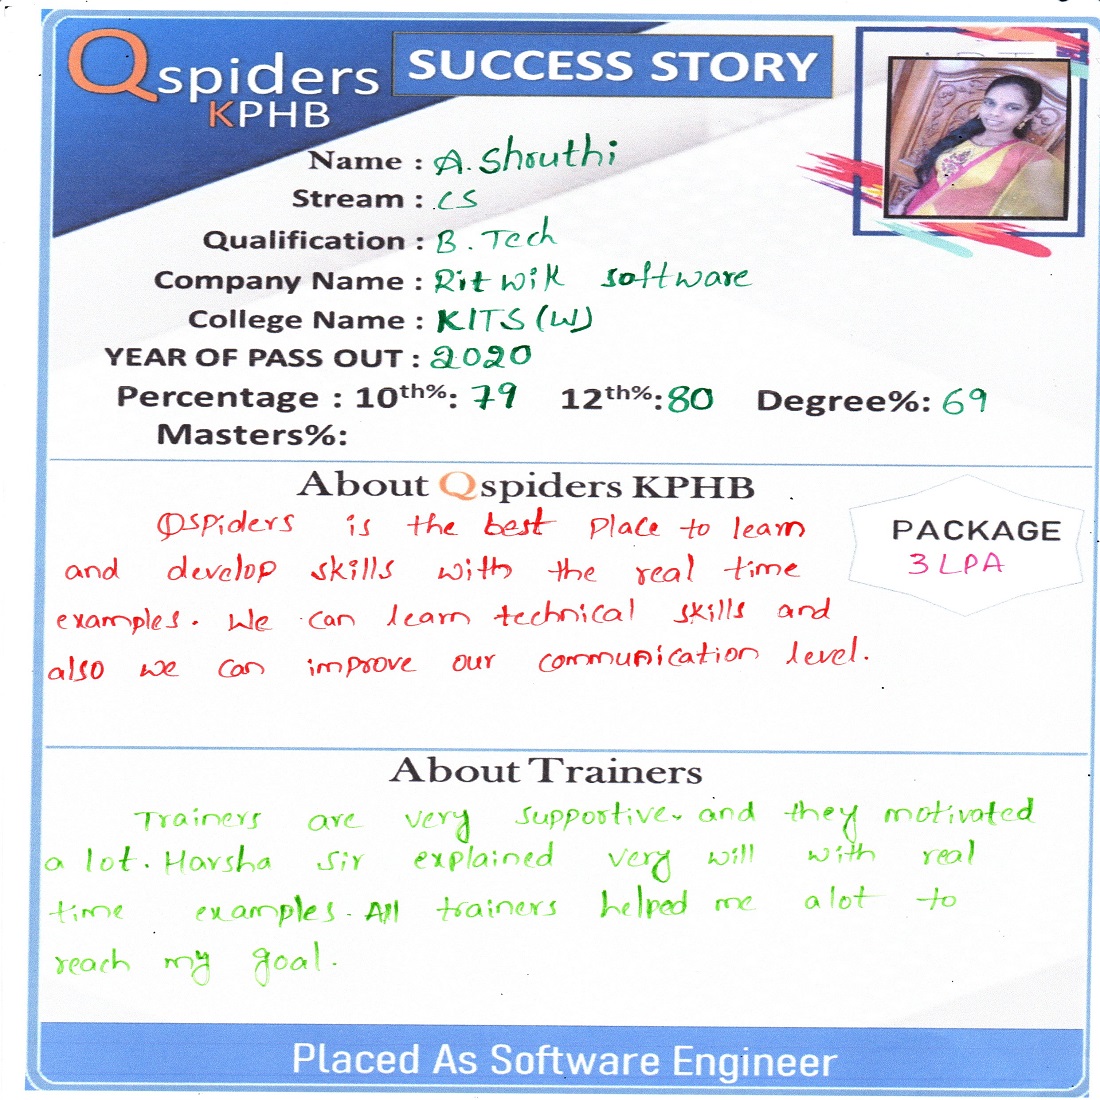 Qspiders
KPHB
SUCCESS STORY
Name : A. Shruthi
Stream : CS
Qualification : B. Tech
Company Name : Ritwik software
College Name : KITS (W)
YEAR OF PASS OUT : 2020
Percentage : 10th%: 79 12th%: 80 Degree%: 69
Masters%:
About Qspiders KPHB
QSpiders is the best place to learn
and develop skills with the real time
examples. We can learn technical skills and
also we can improve our communication level.
PACKAGE
3 LPA
About Trainers
Trainers are very supportive. and they motivated
a lot. Harsha sir explained very will with real
time examples. All trainers helped me alot to
reach my goal.
Placed As Software Engineer